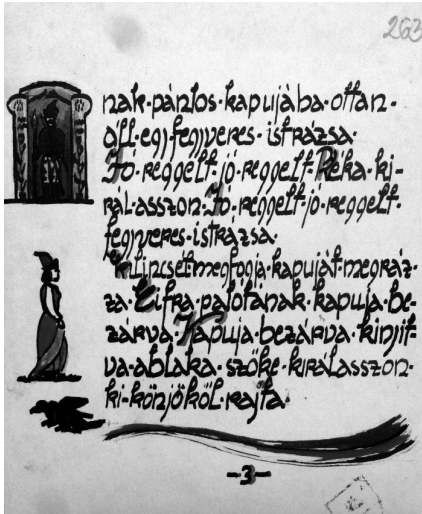 263
nak·pánlos·kapujába·ottan·
áll·egj fegjveres·istrázsa·
Jó·reggelt·jó·reggelt·Réka·ki-
rál·asszon·Jó·reggelt·jó·reggelt·
fegjveres·istrázsa·
Kilincset·megfogja·kapuját·megráz-
za·Cifra·palotának·kapuja·be-
zárva·Kapuja·bezárva·kinjit-
va·ablaka·szőke·királasszon·
ki-könjököl·rajta·
-3-